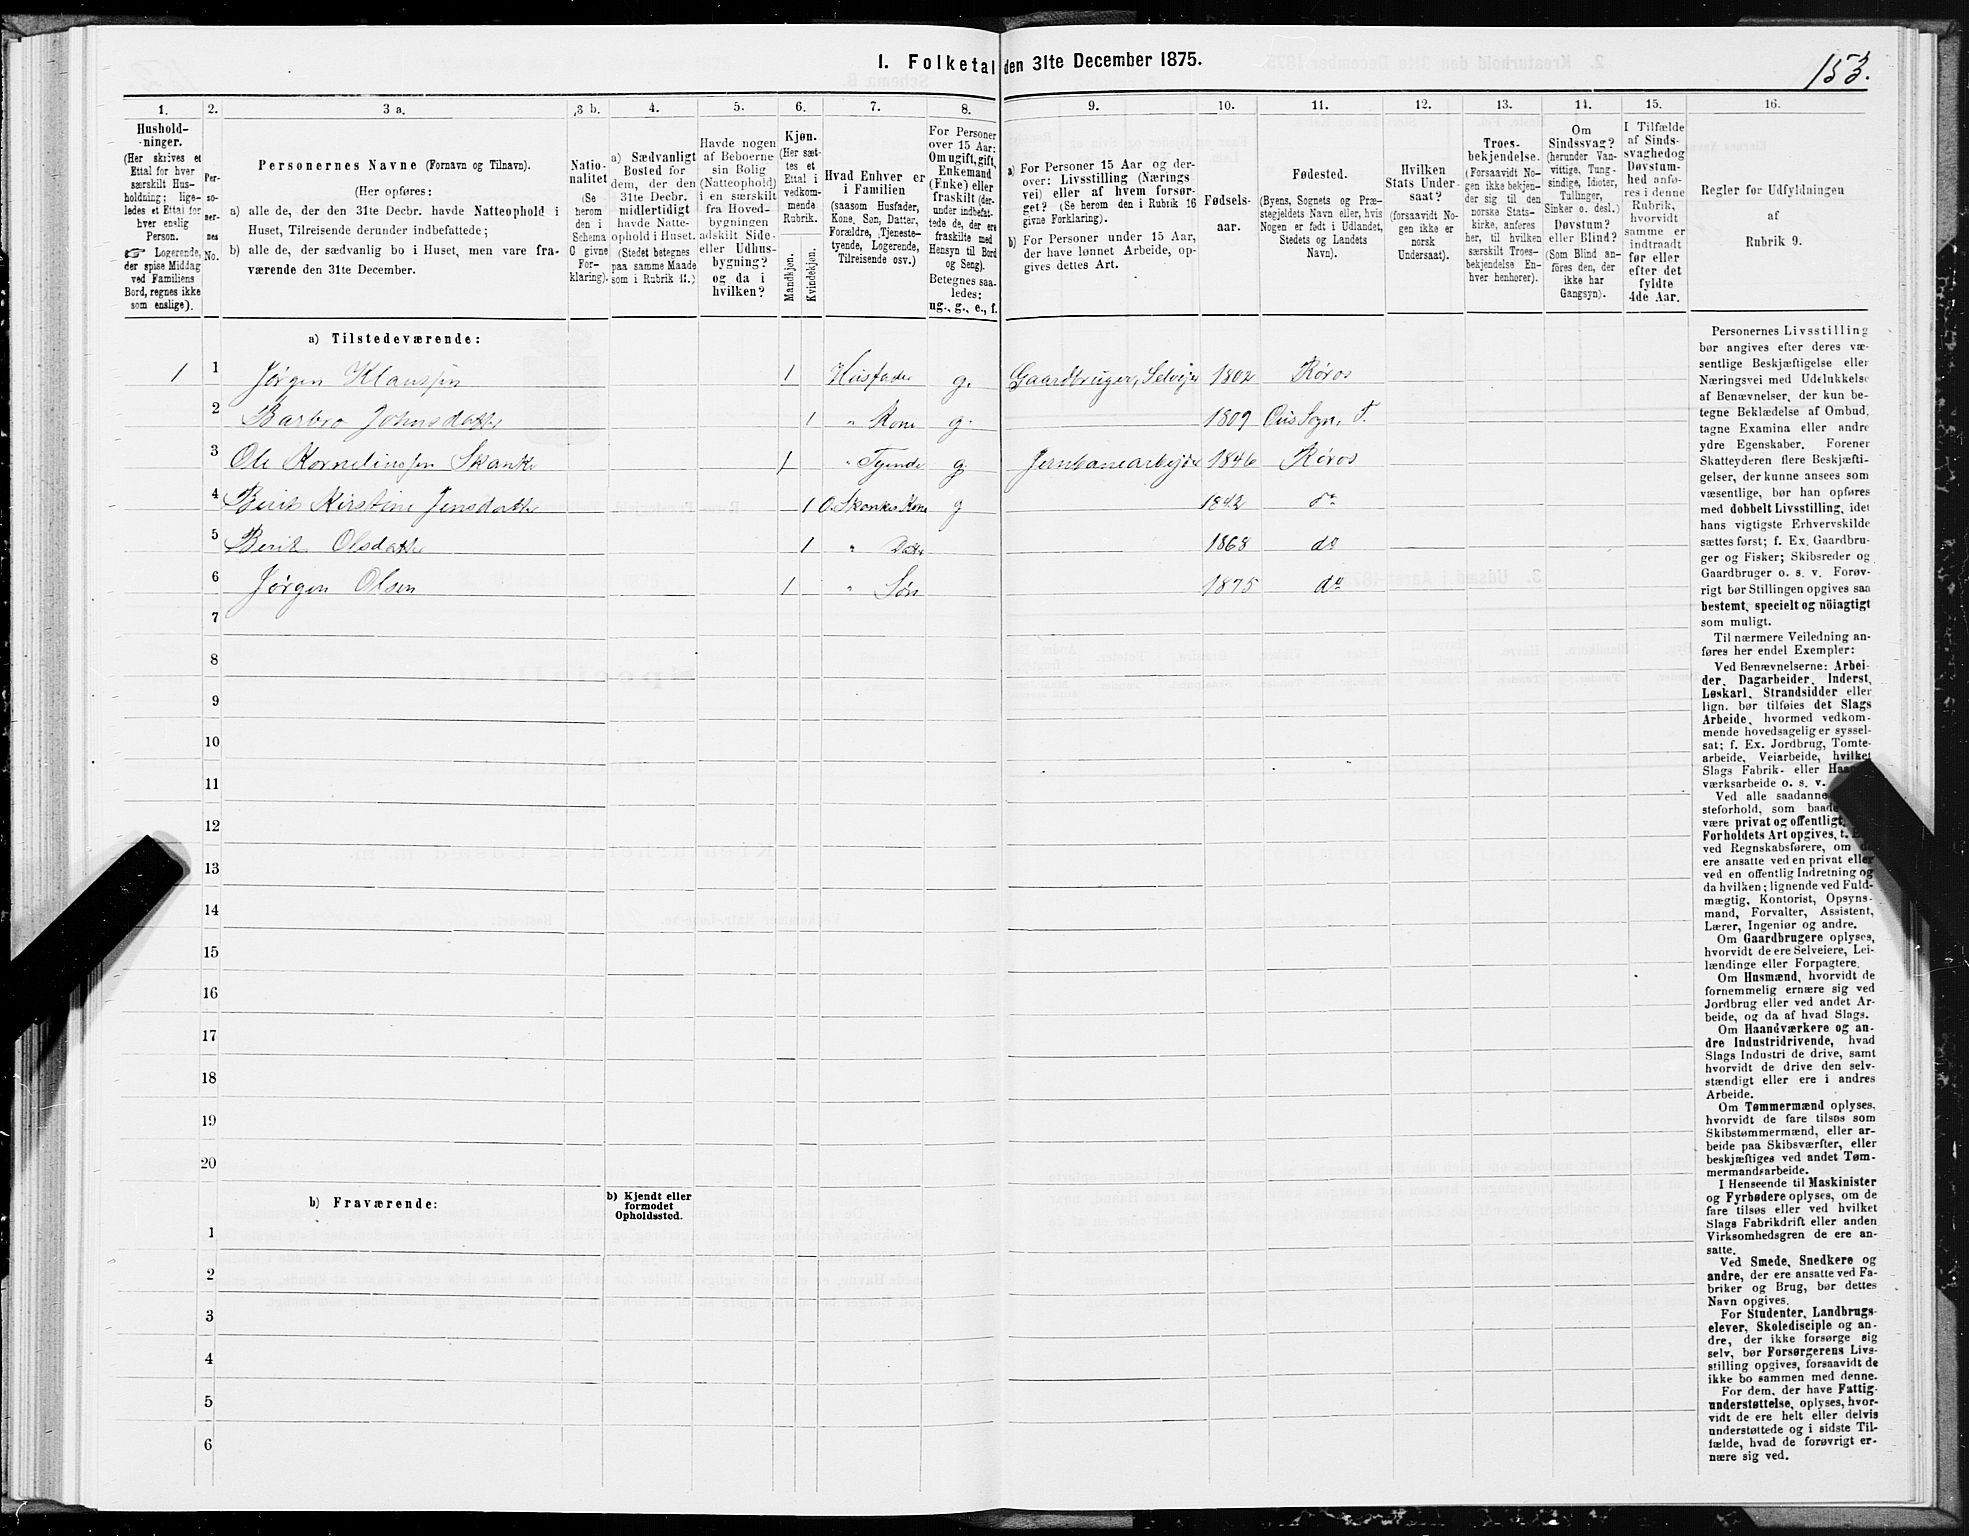 1. Folketal den 31te December 1875.
153.
1. 2. 3 a. 3 b. 4. 5. 6. 7. 8. 9. 10. 11. 12. 13. 14. 15. 16.
Hushold-
ninger.
(Her skrives et
Ettal for hver
særskilt Hus-
holdning; lige-
ledes et Ettal for
hver enslig
Person.
☞ Logerende,
der spise Middag
ved Familiens
Bord, regnes ikke
som enslige).
Per-
so-
ner-
nes
No.
Personernes Navne (Fornavn og Tilnavn).
(Her opføres:
a) alle de, der den 31te Decbr. havde Natteophold i
Huset, Tilreisende derunder indbefattede;
b) alle de, der sædvanlig bo i Huset, men vare fra-
værende den 31te December.
Natio-
nalitet
(Se
herom
den i
Schema
C givne
For-
klaring).
a) Sædvanligt
Bosted for
dem, der den
31te Decbr.
midlertidigt
havde Natte-
ophold i Huset.
(Stedet betegnes
paa samme Maade
som i Rubrik 11.)
Havde nogen
af Beboerne
sin Bolig
(Natteophold)
i en særskilt
fra Hoved-
bygningen
adskilt Side-
eller Udhus-
bygning?
og da i
hvilken?
Kjøn.
(Her sæt-
tes et
Ettal i
vedkom-
mende
Rubrik.
Mandkjøn.
Kvindekjøn.
Hvad Enhver er
i Familien
(saasom Husfader,
Kone, Søn, Datter,
Forældre, Tjeneste-
tyende, Logerende,
Tilreisende osv.)
For Personer
over 15 Aar:
Om ugift, gift,
Enkemand
(Enke) eller
fraskilt (der-
under indbefat-
tede de, der ere
fraskilte med
Hensyn til Bord
og Seng).
Betegnes saa-
ledes:
ug., g., e., f.
a) For Personer 15 Aar og der-
over: Livsstilling (Nærings-
vei) eller af hvem forsør-
get? (Se herom den i Rubrik 16
givne Forklaring).
b) For Personer under 15 Aar,
der have lønnet Arbeide, op-
gives dettes Art.
Fødsels-
aar.
Fødested.
(Byens, Sognets og Præ-
stegjeldets Navn eller, hvis
Nogen er født i Udlandet,
Stedets og Landets
Navn).
Hvilken
Stats Under-
saat?
(forsaavidt No-
gen ikke er
norsk
Undersaat).
Troes-
bekjendelse.
(Forsaavidt No-
gen ikke bekjen-
der sig til den
norske Stats-
kirke, anføres
her, til hvilken
særskilt Troes-
bekjendelse En-
hver henhører).
Om
Sindssvag?
(herunder Van-
vittige, Tung-
sindige, Idioter,
Tullinger,
Sinker o. desl.)
Døvstum?
eller Blind?
(Som Blind an-
føres den, der
ikke har
Gangsyn).
I Tilfælde
af Sinds-
svaghed og
Døvstum-
hed anfø-
res i denne
Rubrik,
hvorvidt
samme er
indtraadt
før eller
efter det
fyldte
4de Aar.
Regler for Udfyldningen
af
Rubrik 9.
a) Tilstedeværende:
1 1 Jørgen Klaussen 1 Husfader g. Gaardbruger, Selveier 1802 Røros
2 Barbro Johnsdatter 1 " Kone g. 1809 T.
3 Ole Kornelinssen Skanke 1 " Tyende g. Jernbanearbejder 1846 Røros
4 Berit Kirstine Jensdatter 1 O. Skankes Kone g 1842 do
5 Berit Olsdatter 1 " Datter 1868 do
6 Jørgen Olsen 1 " Søn 1875 do
7
8
9
10
11
12
13
14
15
16
17
18
19
20
b) Fraværende:
b) Kjendt eller
formodet
Opholdssted.
1
2
3
4
5
6
Personernes Livsstilling
bør angives efter deres væ-
sentlige Beskjæftigelse eller
Næringsvei med Udelukkelse
af Benævnelser, der kun be-
tegne Beklædelse af Ombud,
tagne Examina eller andre
ydre Egenskaber. Forener
Skatteyderen flere Beskjæfti-
gelser, der kunne ansees som
væsentlige, bør han opføres
med dobbelt Livsstilling, idet
hans vigtigste Erhvervskilde
sættes først; f. Ex. Gaardbru-
ger og Fisker; Skibsreder og
Gaardbruger o. s. v. Forøv-
rigt bør Stillingen opgives saa
bestemt, specielt og nöiagtigt
som muligt.
Til nærmere Veiledning an-
føres her endel Exempler:
Ved Benævnelserne: Arbei-
der, Dagarbeider, Inderst,
Løskarl, Strandsidder eller
lign. bør tilføies det Slags
Arbeide, hvormed vedkom-
mende hovedsagelig er syssel-
sat; f. Ex. Jordbrug, Tomte-
arbeide, Veiarbeide, hvilket
Slags Fabrik- eller
værksarbeide o. s. v.
Ved alle saadanne
steforhold, som baade
være privat og offentligt,
Forholdets Art opgives, t.
ved Regnskabsførere, om
ere ansatte ved en privat eller
ved en offentlig Indretning og
da hvilken; lignende ved Fuld-
mægtig, Kontorist, Opsyns-
mand, Forvalter, Assistent,
Lærer, Ingeniør og andre.
Om Gaardbrugere oplyses,
hvorvidt de ere Selveiere, Lei-
lændinge eller Forpagtere.
Om Husmænd, hvorvidt de
fornemmelig ernære sig ved
Jordbrug eller ved andet Ar-
beide, og da af hvad Slags.
Om Haandværkere og an-
dre Industridrivende, hvad
Slags Industri de drive, samt
hvorvidt de drive den selv-
stændigt eller ere i andres
Arbeide.
Om Tømmermænd oplyses,
hvorvidt de fare tilsøs som
Skibstømmermænd, eller ar-
beide paa Skibsværfter, eller
beskjæftiges ved andet Tøm-
mermandsarbeide.
I Henseende til Maskinister
og Fyrbødere oplyses, om de
fare tilsøs eller ved hvilket
Slags Fabrikdrift eller anden
Virksomhedsgren de ere an-
satte.
Ved Smede, Snedkere og
andre, der ere ansatte ved Fa-
briker og Brug, bør dettes
Navn opgives.
For Studenter, Landbrugs-
elever, Skoledisciple og an-
dre, der ikke forsørge sig
selv, bør Forsørgerens Livs-
stilling opgives, forsaavidt de
ikke bo sammen med denne.
For dem, der have Fattig-
understøttelse, oplyses, hvor-
vidt de ere helt eller delvis
understøttede og i sidste Til-
fælde, hvad de forøvrigt er-
nære sig ved.